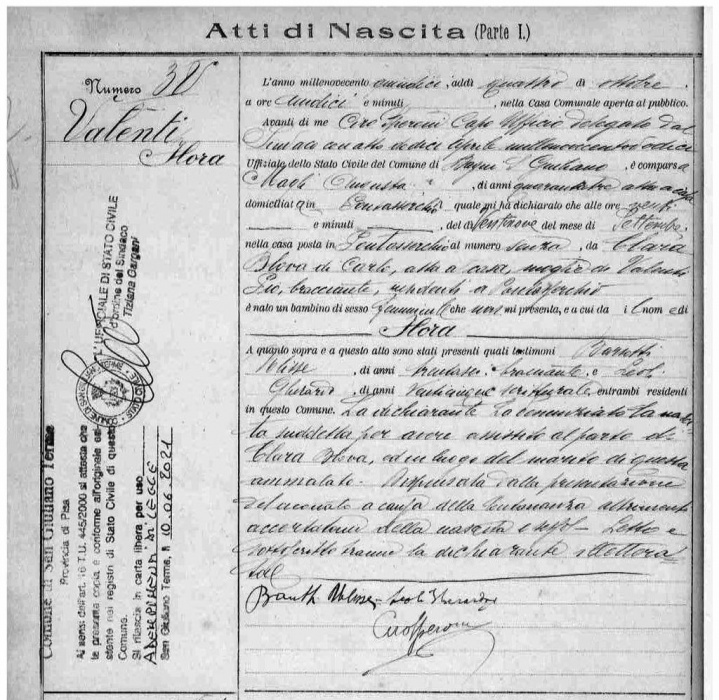 Atti di Nascita (Parte I.)
Numero
Valenti
Flora
L'anno millenovecento quindici, addì quattro di ottobre
a ore undici e minuti , nella Casa Comunale aperta al pubblico.
Avanti di me Ciro Speroni Capo Ufficio delegato dal
Sindaco con atto dodici Aprile millenovecentododici
Uffiziale dello Stato Civile del Comune di Bagni S. Giuliano, è comparsa
Magli Augusta, di anni quarantatre atta a casa
domiciliata in Pontasserchio quale mi ha dichiarato che alle ore venti
e minuti , del dì Ventinove del mese di Settembre
nella casa posta in Pontasserchio al numero senza, da Clara
di Carlo, atta a casa, moglie di Valenti
Pio, bracciante, residenti a Pontasserchio
è nato un bambino di sesso femminile che non mi presenta, e a cui da il nome di
Flora
A quanto sopra e a questo atto sono stati presenti quali testimoni
Ulisse, di anni bracciante, e Leoli
Gherardo, di anni venticinque scritturale, entrambi residenti
in questo Comune. La dichiarante ha denunciato la nasci-
ta suddetta per avere assistito al parto di
Clara ed in luogo del marito di questa
ammalato. Dispensata dalla presentazione
del neonato a causa della lontananza altrimenti
accertatomi della nascita e Letto e
sottoscritto tranne la dichiarante illettera-
ta
Ulisse Leoli Gherardo
Ciro Speroni
Comune di San Giuliano Terme
Provincia di Pisa
Ai sensi dell'art. 18 T.U. 445/2000 si attesta che
la presente copia è conforme all'originale esi-
stente nei registri di Stato Civile di questo
Comune.
Si rilascia in carta libera per uso
ADEMPIMENTI DI LEGGE
San Giuliano Terme, lì 10.06.2021
L'UFFICIALE DI STATO CIVILE
d'ordine del Sindaco
Tiziana Gargani